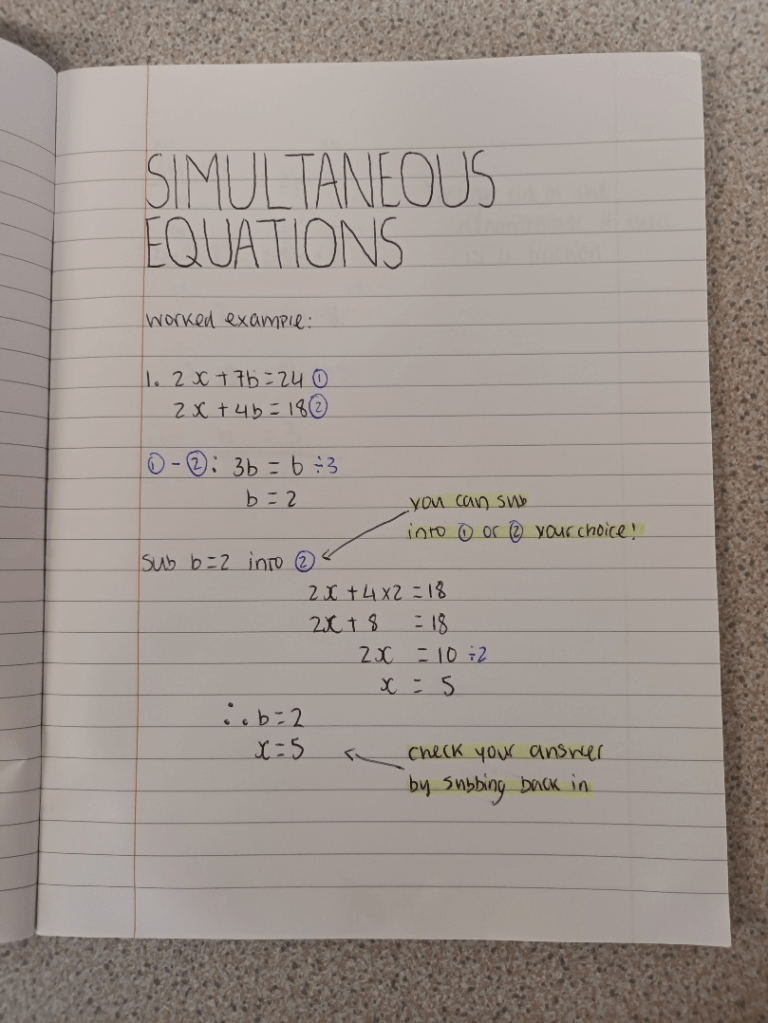 SIMULTANEOUS
EQUATIONS
worked example:
1. 2x+7b=24 ①
2x+4b=18②
①-②: 3b = 6 ÷3
b = 2
you can sub
into ① or ② your choice!
sub b=2 into ②
2x+4×2=18
2x+8 =18
2x =10 ÷2
x = 5
∴ b=2
x=5
check your answer
by subbing back in